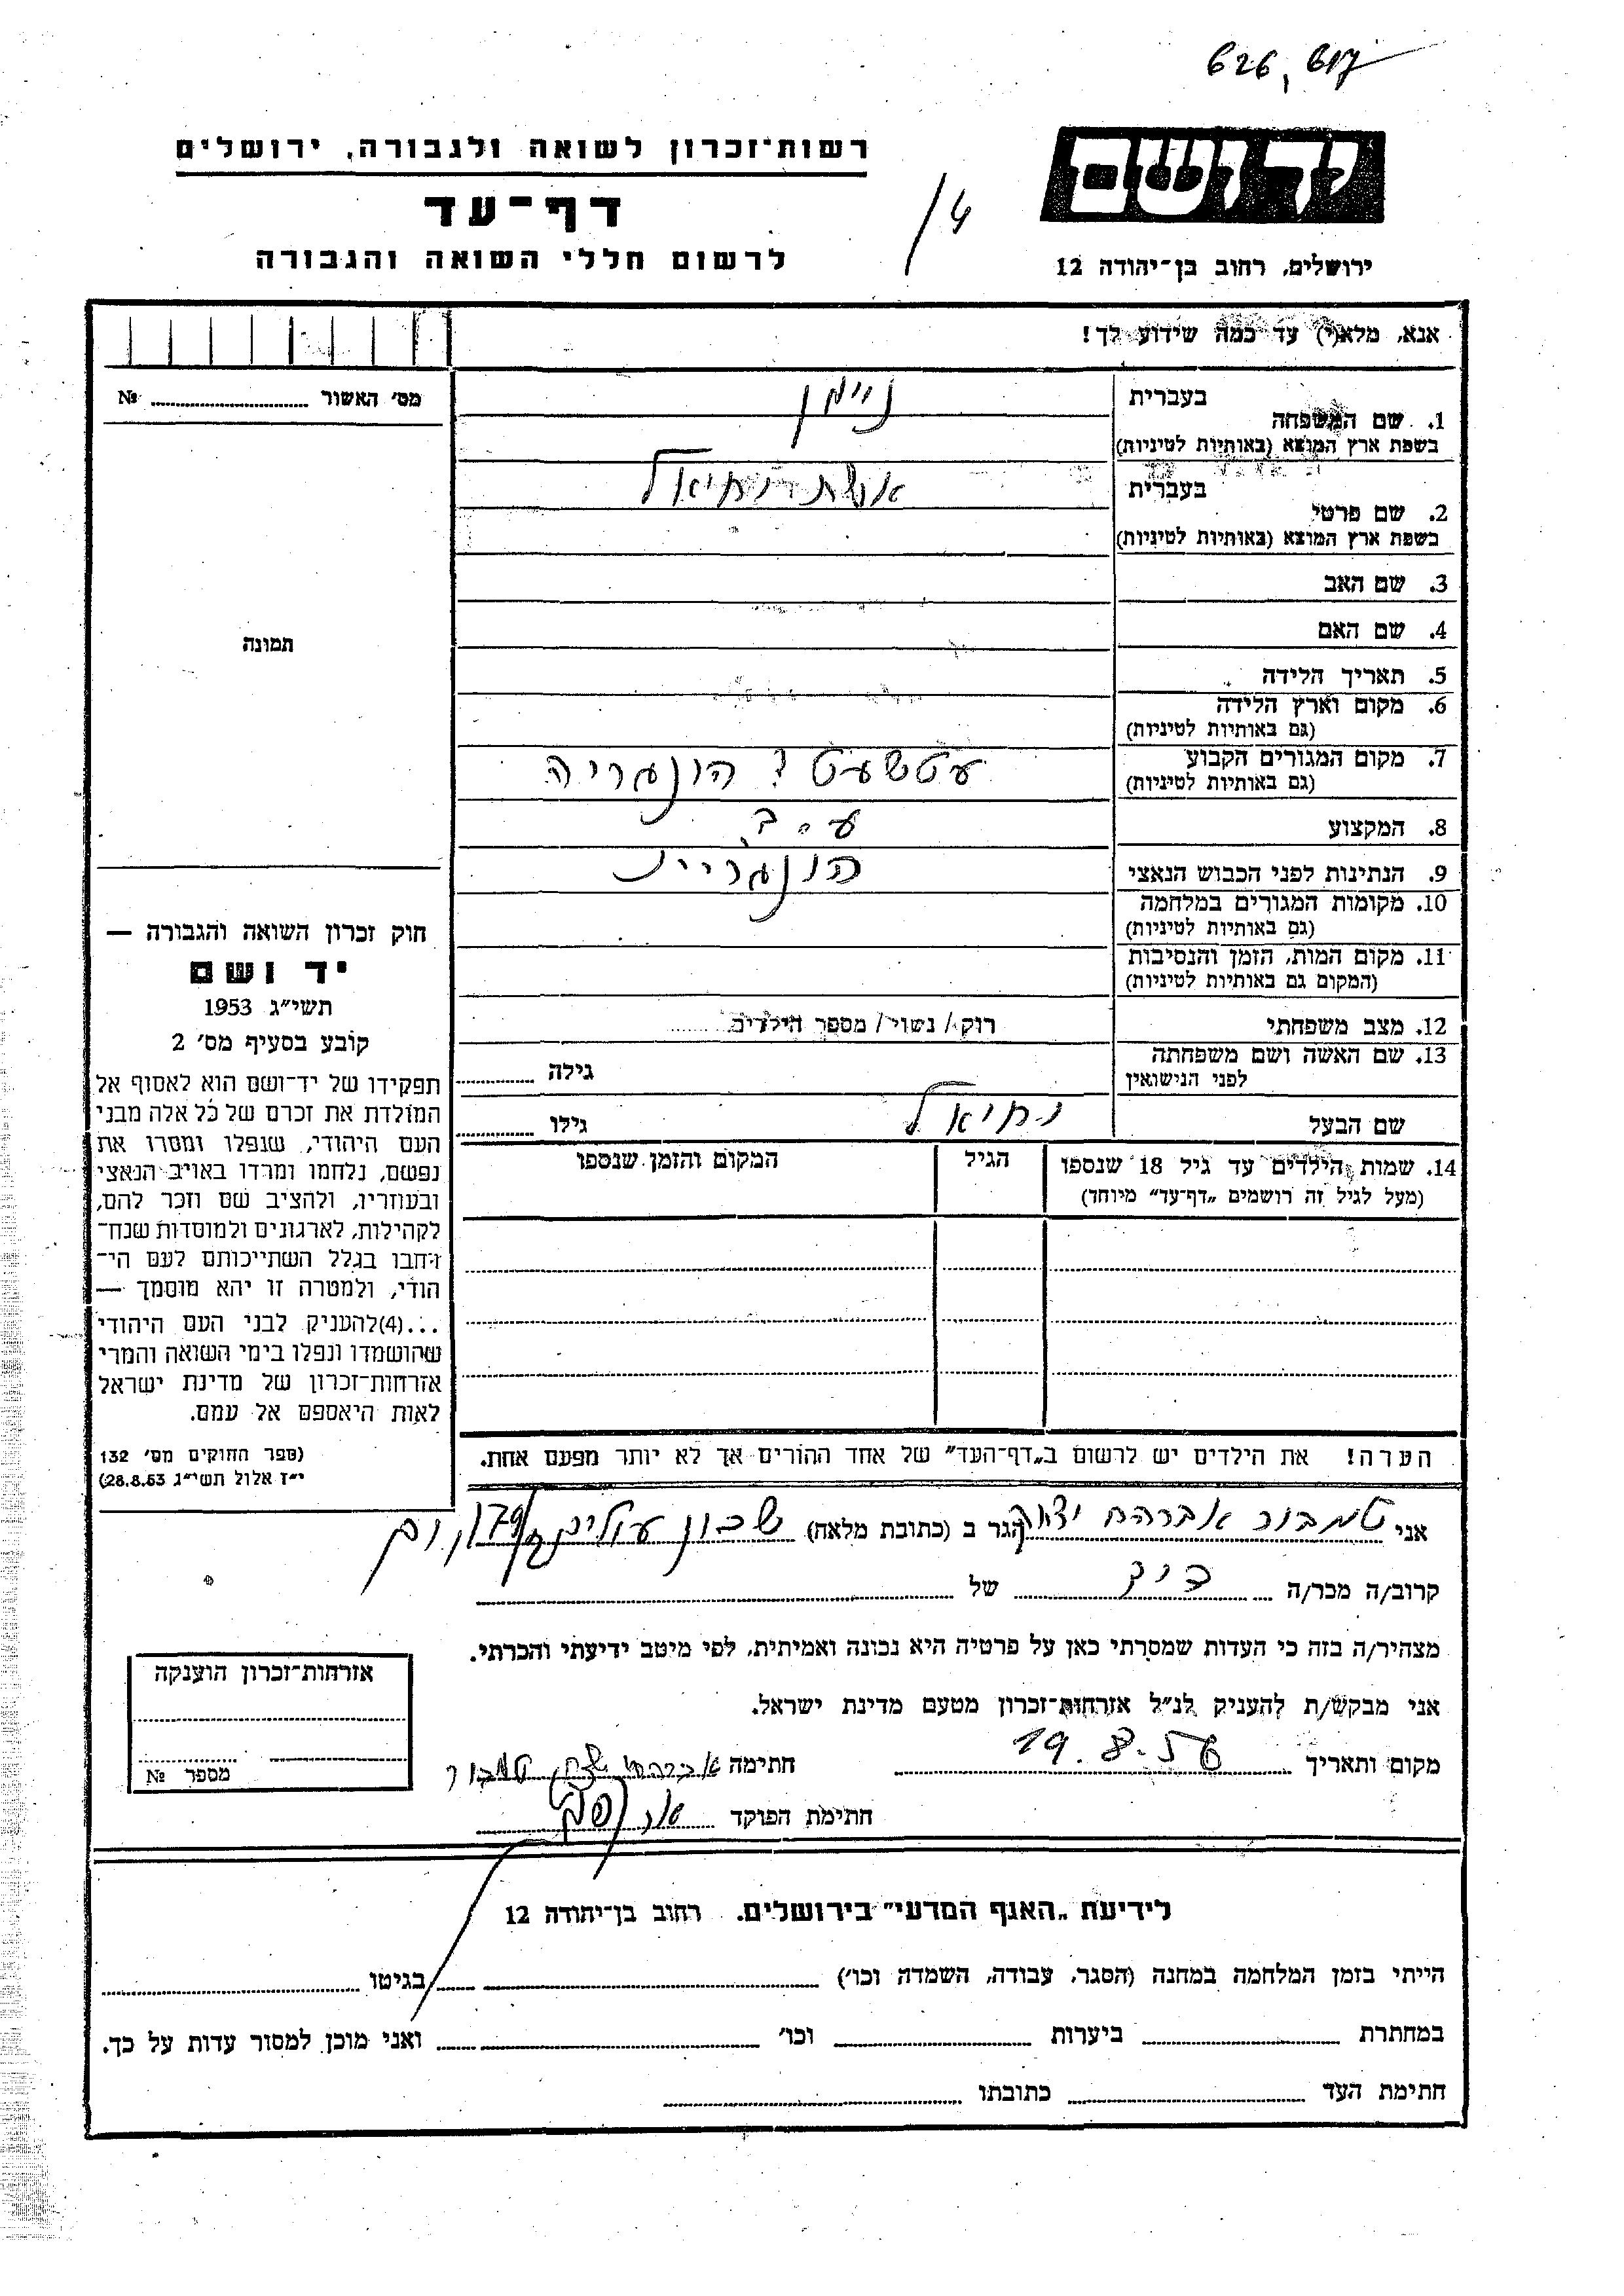 626, 617
רשות־זכרון לשואה ולגבורה, ירושלים
ידושם
דף־עד
4/
לרשום חללי השואה והגבורה
ירושלים, רחוב בן־יהודה 12
אנא, מלא(י) עד כמה שידוע לך!
מס׳ האשור ........ №
בעברית
ניימן
1. שם המשפחה
בשפת ארץ המוצא (באותיות לטיניות)
בעברית
אשת יחיאל
2. שם פרטי
בשפת ארץ המוצא (באותיות לטיניות)
3. שם האב
4. שם האם
תמונה
5. תאריך הלידה
6. מקום וארץ הלידה
(גם באותיות לטיניות)
7. מקום המגורים הקבוע
עטשעט ? הונגריה
(גם באותיות לטיניות)
8. המקצוע ע.ב.
9. הנתינות לפני הכבוש הנאצי הונגריית
10. מקומות המגורים במלחמה
(גם באותיות לטיניות)
11. מקום המות, הזמן והנסיבות
(המקום גם באותיות לטיניות)
12. מצב משפחתי רוק/ נשוי/ מספר הילדים ........
13. שם האשה ושם משפחתה
לפני הנישואין גילה ........
שם הבעל יחיאל גילו ........
14. שמות הילדים עד גיל 18 שנספו הגיל המקום והזמן שנספו
(מעל לגיל זה רושמים „דף־עד״ מיוחד)
חוק זכרון השואה והגבורה —
יד ושם
תשי״ג 1953
קובע בסעיף מס׳ 2
תפקידו של יד־ושם הוא לאסוף אל
המולדת את זכרם של כל אלה מבני
העם היהודי, שנפלו ומסרו את
נפשם, נלחמו ומרדו באויב הנאצי
ובעוזריו, ולהציב שם וזכר להם,
לקהילות, לארגונים ולמוסדות שנח־
רבו בגלל השתייכותם לעם הי־
הודי, ולמטרה זו יהא מוסמך —
...(4)להעניק לבני העם היהודי
שהושמדו ונפלו בימי השואה והמרי
אזרחות־זכרון של מדינת ישראל
לאות היאספם אל עמם.
(ספר החוקים מס׳ 132
י״ז אלול תשי״ג 28.8.53)
הערה! את הילדים יש לרשום ב„דף־העד״ של אחד ההורים אך לא יותר מפעם אחת.
אני טמבור אברהם יצחק הגר ב (כתובת מלאה) שכון עולים 179
קרוב/ה מכר/ה של
מצהיר/ה בזה כי העדות שמסרתי כאן על פרטיה היא נכונה ואמיתית, לפי מיטב ידיעתי והכרתי.
אני מבקש/ת להעניק לנ״ל אזרחות־זכרון מטעם מדינת ישראל.
מקום ותאריך 19.8.56 חתימה אברהם יצחק טמבור
חתימת הפוקד
אזרחות־זכרון הוענקה
מספר №
לידיעת „האגף המדעי״ בירושלים, רחוב בן־יהודה 12
הייתי בזמן המלחמה במחנה (הסגר, עבודה, השמדה וכו׳) ........ בגיטו ........
במחתרת ........ ביערות ........ וכו׳ ........ ואני מוכן למסור עדות על כך.
חתימת העד ........ כתובתו ........